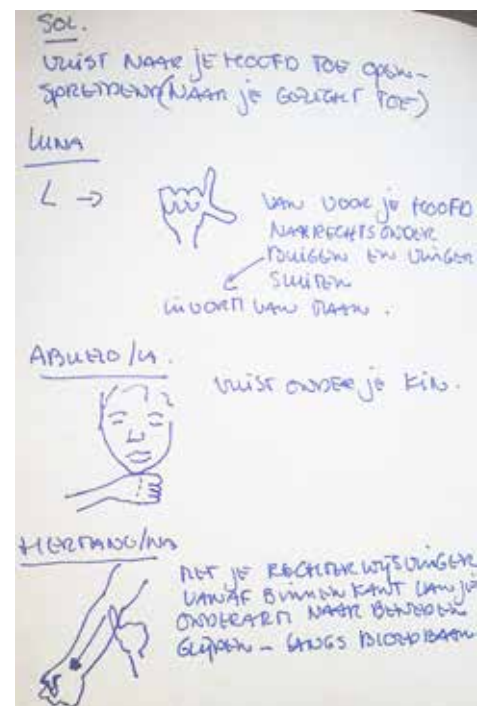 SOL.
VUIST NAAR JE HOOFD TOE OPEN-
SPREIDEND (NAAR JE GEZICHT TOE)
LUNA
L →
VAN VOOR JE HOOFD
NAAR RECHTS ONDER
BUIGEN EN VINGER
SLUITEN
IN VORM VAN MAAN.
ABUELO/LA.
VUIST ONDER JE KIN.
HERMANO/NA
MET JE RECHTER WIJSVINGER
VANAF BINNENKANT VAN JE
ONDERARM NAAR BENEDEN
GLIJDEN - LANGS BLOEDBAAN